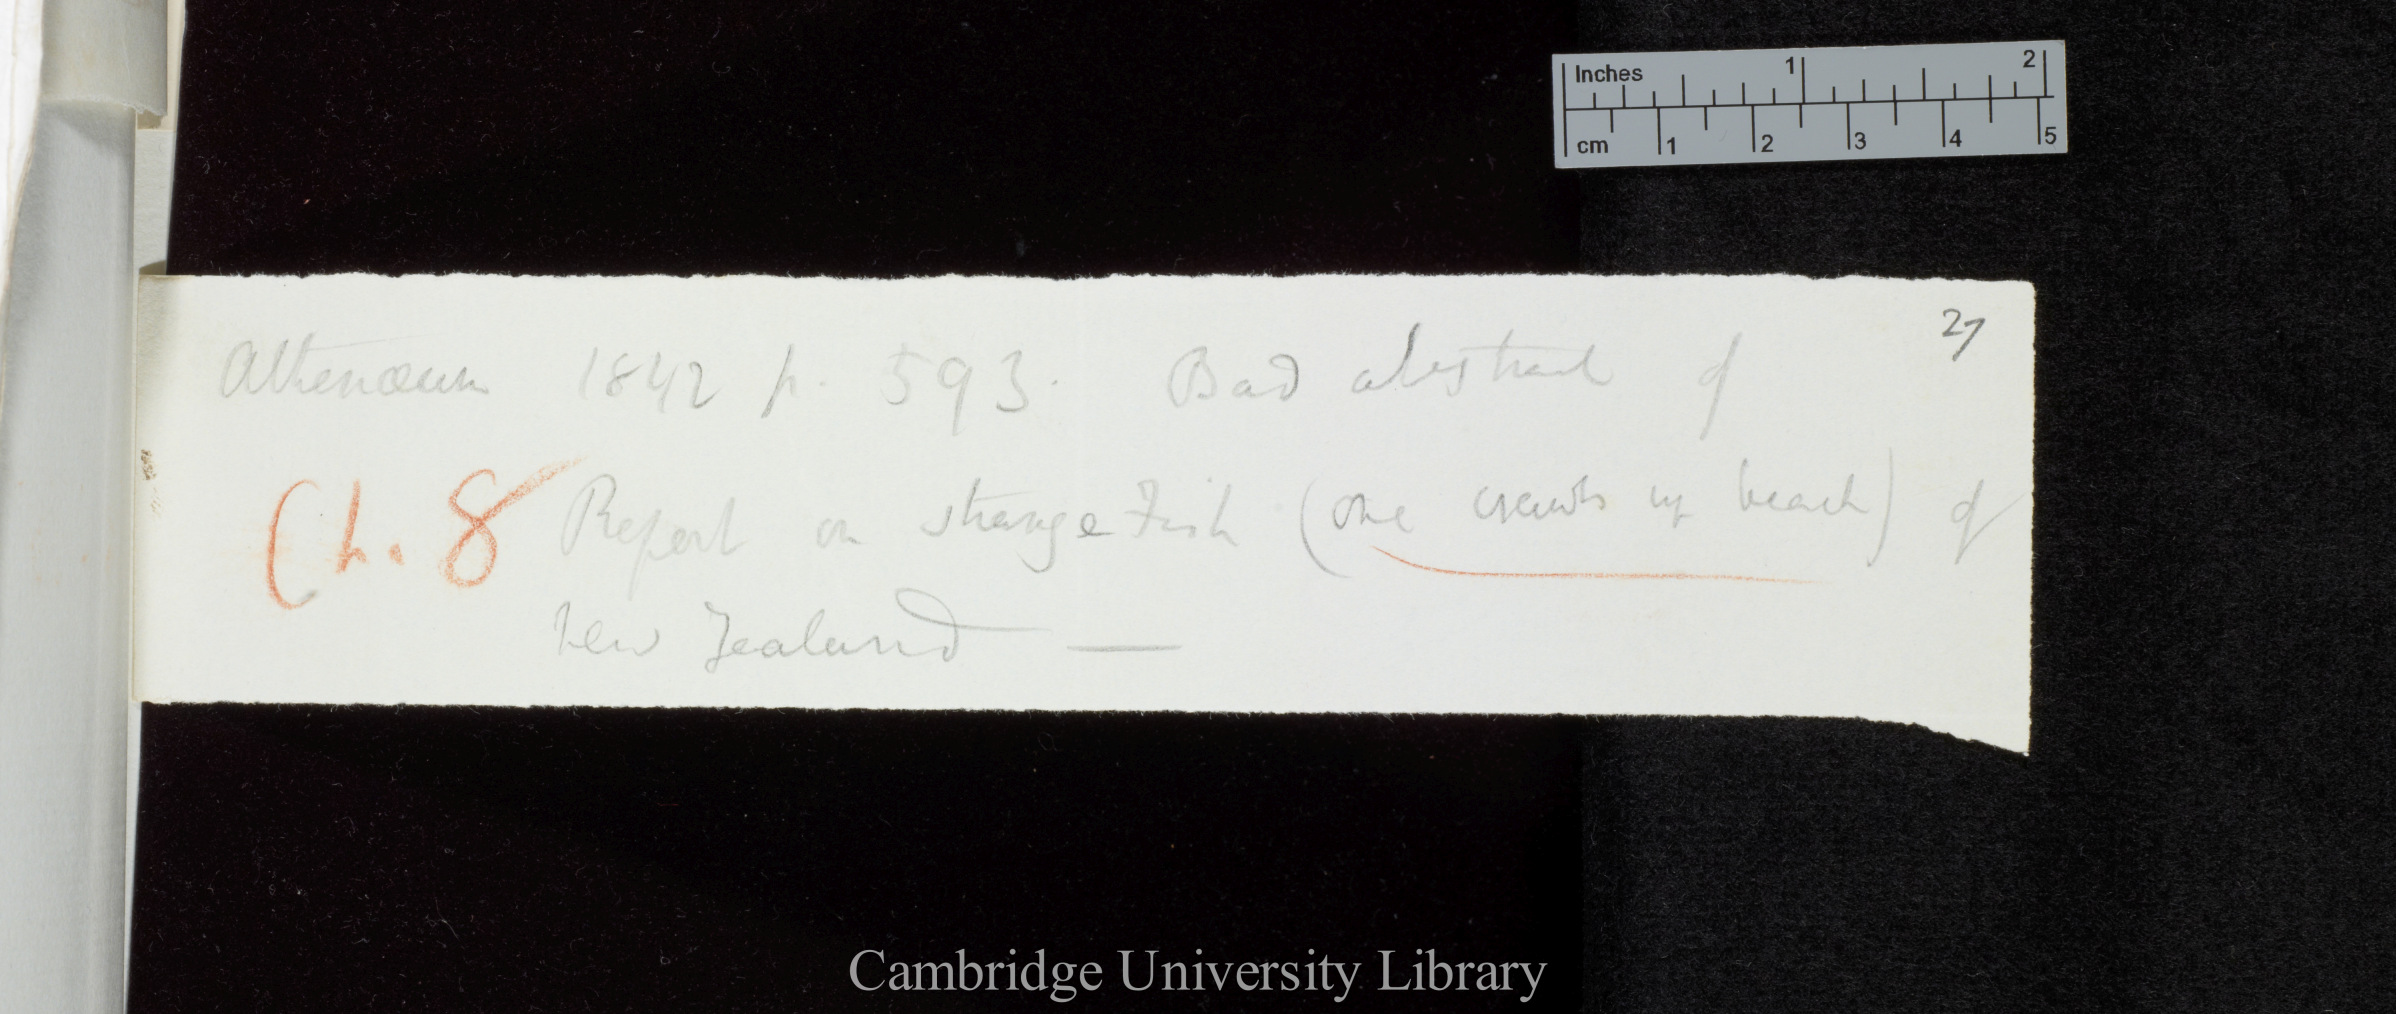 Inches 1 2
cm 1 2 3 4 5
27
Athenæum 1842 p. 593. Bad abstract of
Ch. 8 Report on strange Fish (one crawls up beach) of
New Zealand —
Cambridge University Library